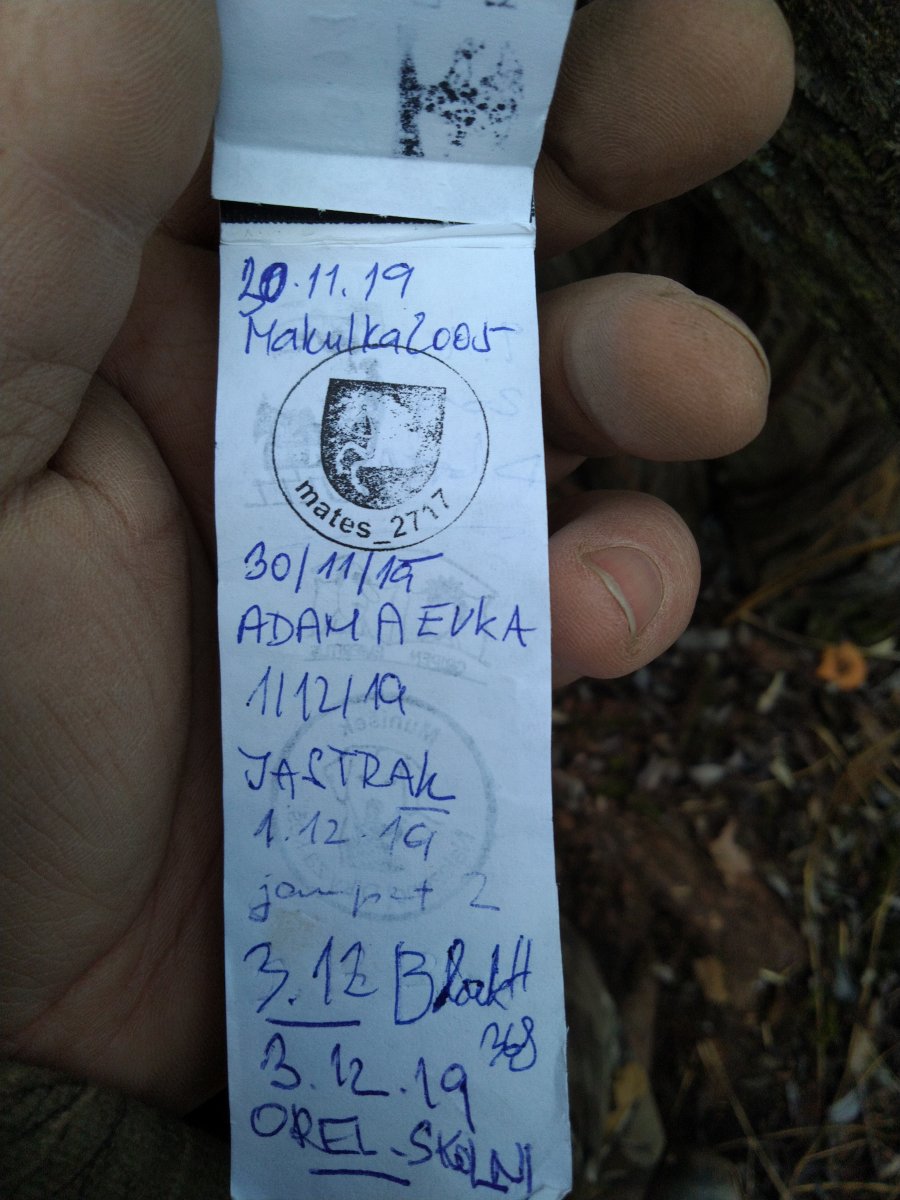 20.11.19
Makulka2005
mates_2717
30/11/19
ADAM A EVKA
1/12/19
JASTRAK
1.12.19
2
3.12
368
3.12.19
OREL-SKALNI